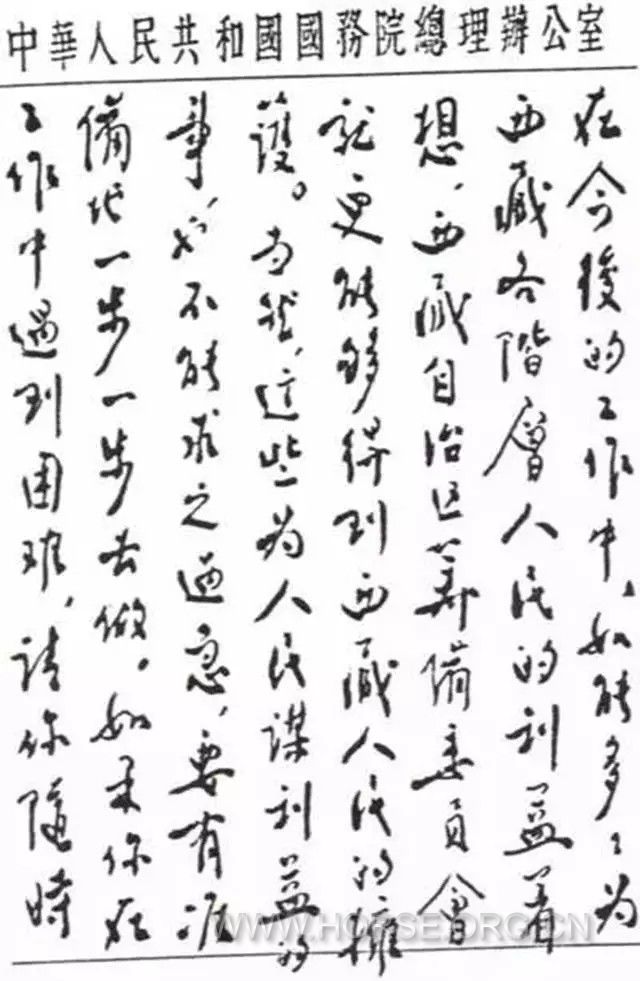 中華人民共和國國務院總理辦公室
在今後的工作中，如能多〻为
西藏各階層人民的利益着
想，西藏自治区筹備委員會
就更能够得到西藏人民的擁
護。当然，这些为人民謀利益的
事，也不能求之過急，要有准
備地一步一步去做。如果你在
工作中遇到困难，請你隨時
WWW.HORSE.ORG.CN